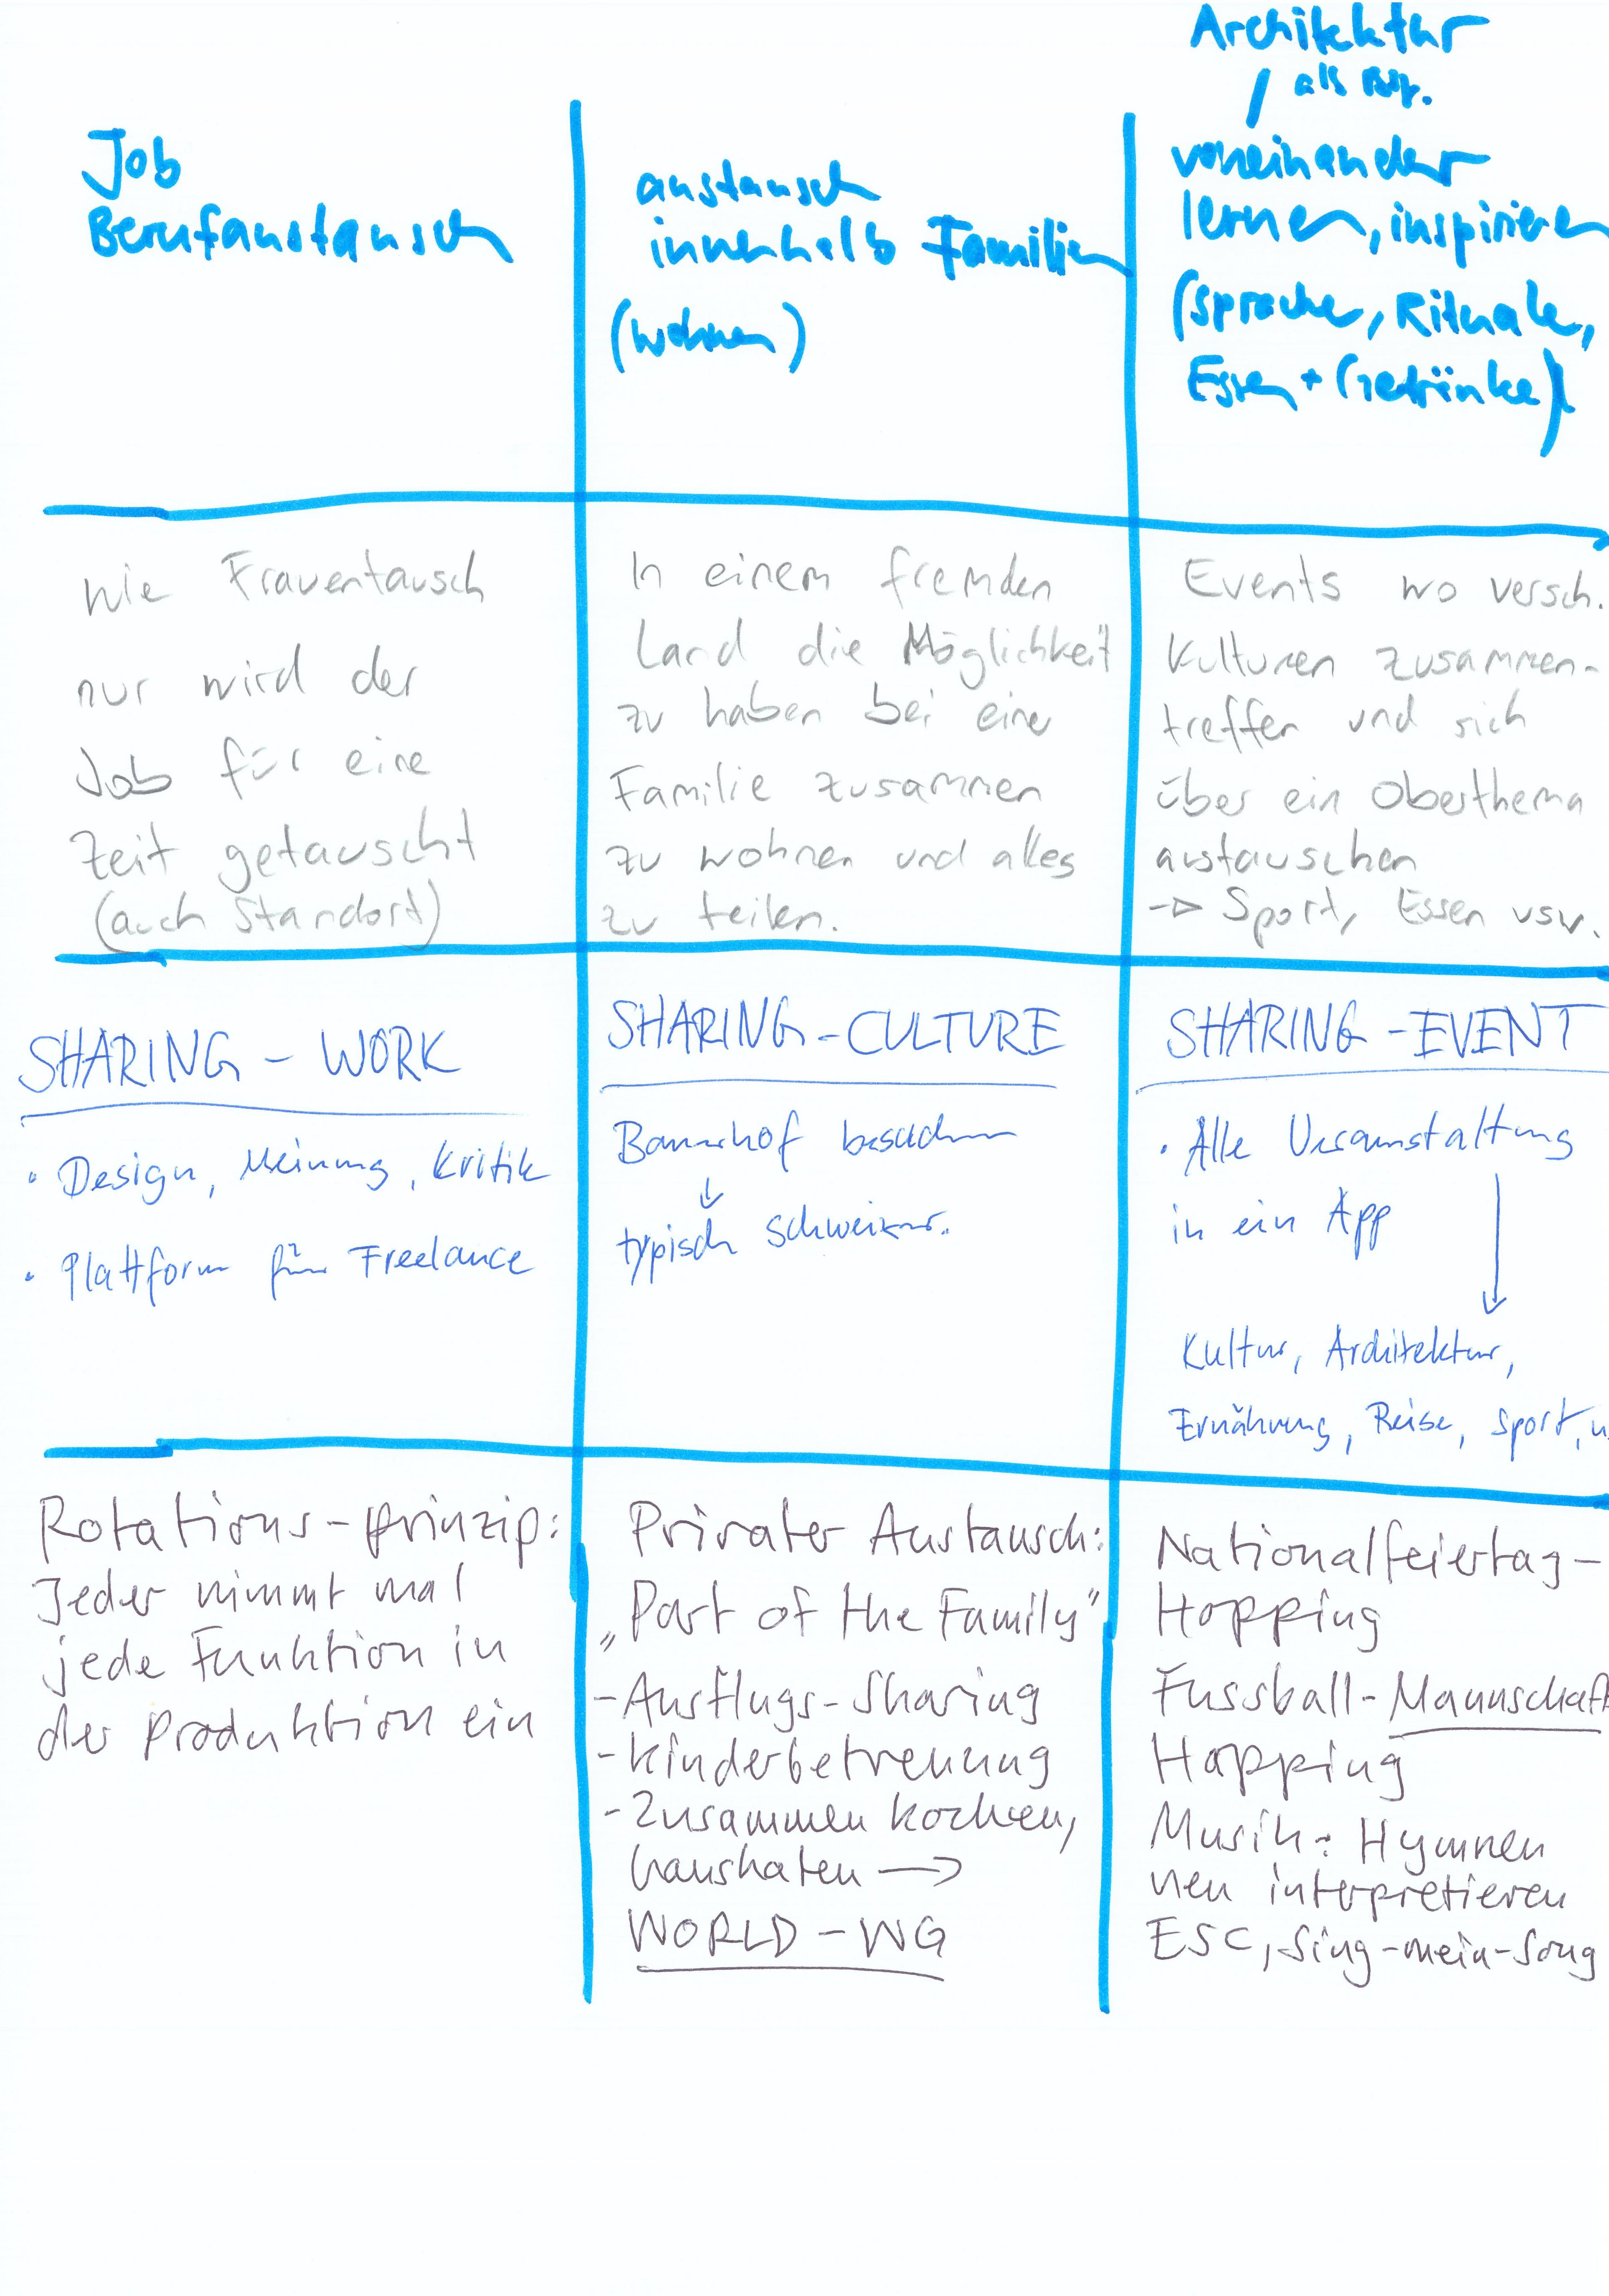 Job
Berufaustausch
austausch
innerhalb Familien
(wohnen)
Architektur
/ als Bsp.
voneinander
lernen, inspirieren
(Sprache, Rituale,
Essen + Getränke)
Wie Frauentausch
nur wird der
Job für eine
Zeit getauscht
(auch Standort)
In einem fremden
Land die Möglichkeit
zu haben bei einer
Familie zusammen
zu wohnen und alles
zu teilen.
Events wo versch.
Kulturen zusammen-
treffen und sich
über ein Oberthema
austauschen
→ Sport, Essen usw.
SHARING - WORK
• Design, Meinung, Kritik
• Plattform für Freelance
SHARING - CULTURE
Bauernhof besuchen
↓
typisch Schweizer.
SHARING - EVENT
• Alle Veranstaltung
in ein App
↓
Kultur, Architektur,
Ernährung, Reise, Sport, u
Rotations-prinzip:
Jeder nimmt mal
jede Funktion in
der Produktion ein
Privater Austausch:
„Part of the Family"
- Ausflugs-Sharing
- Kinderbetreuung
- Zusammen kochen,
haushaten →
WORLD - WG
Nationalfeiertag-
Hopping
Fussball-Mannschaft
Hopping
Musik: Hymnen
neu interpretieren
ESC, Sing-mein-Song